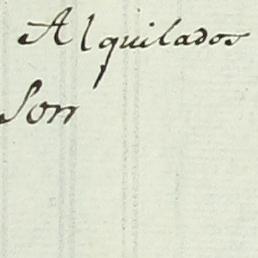 Alquilados
Son